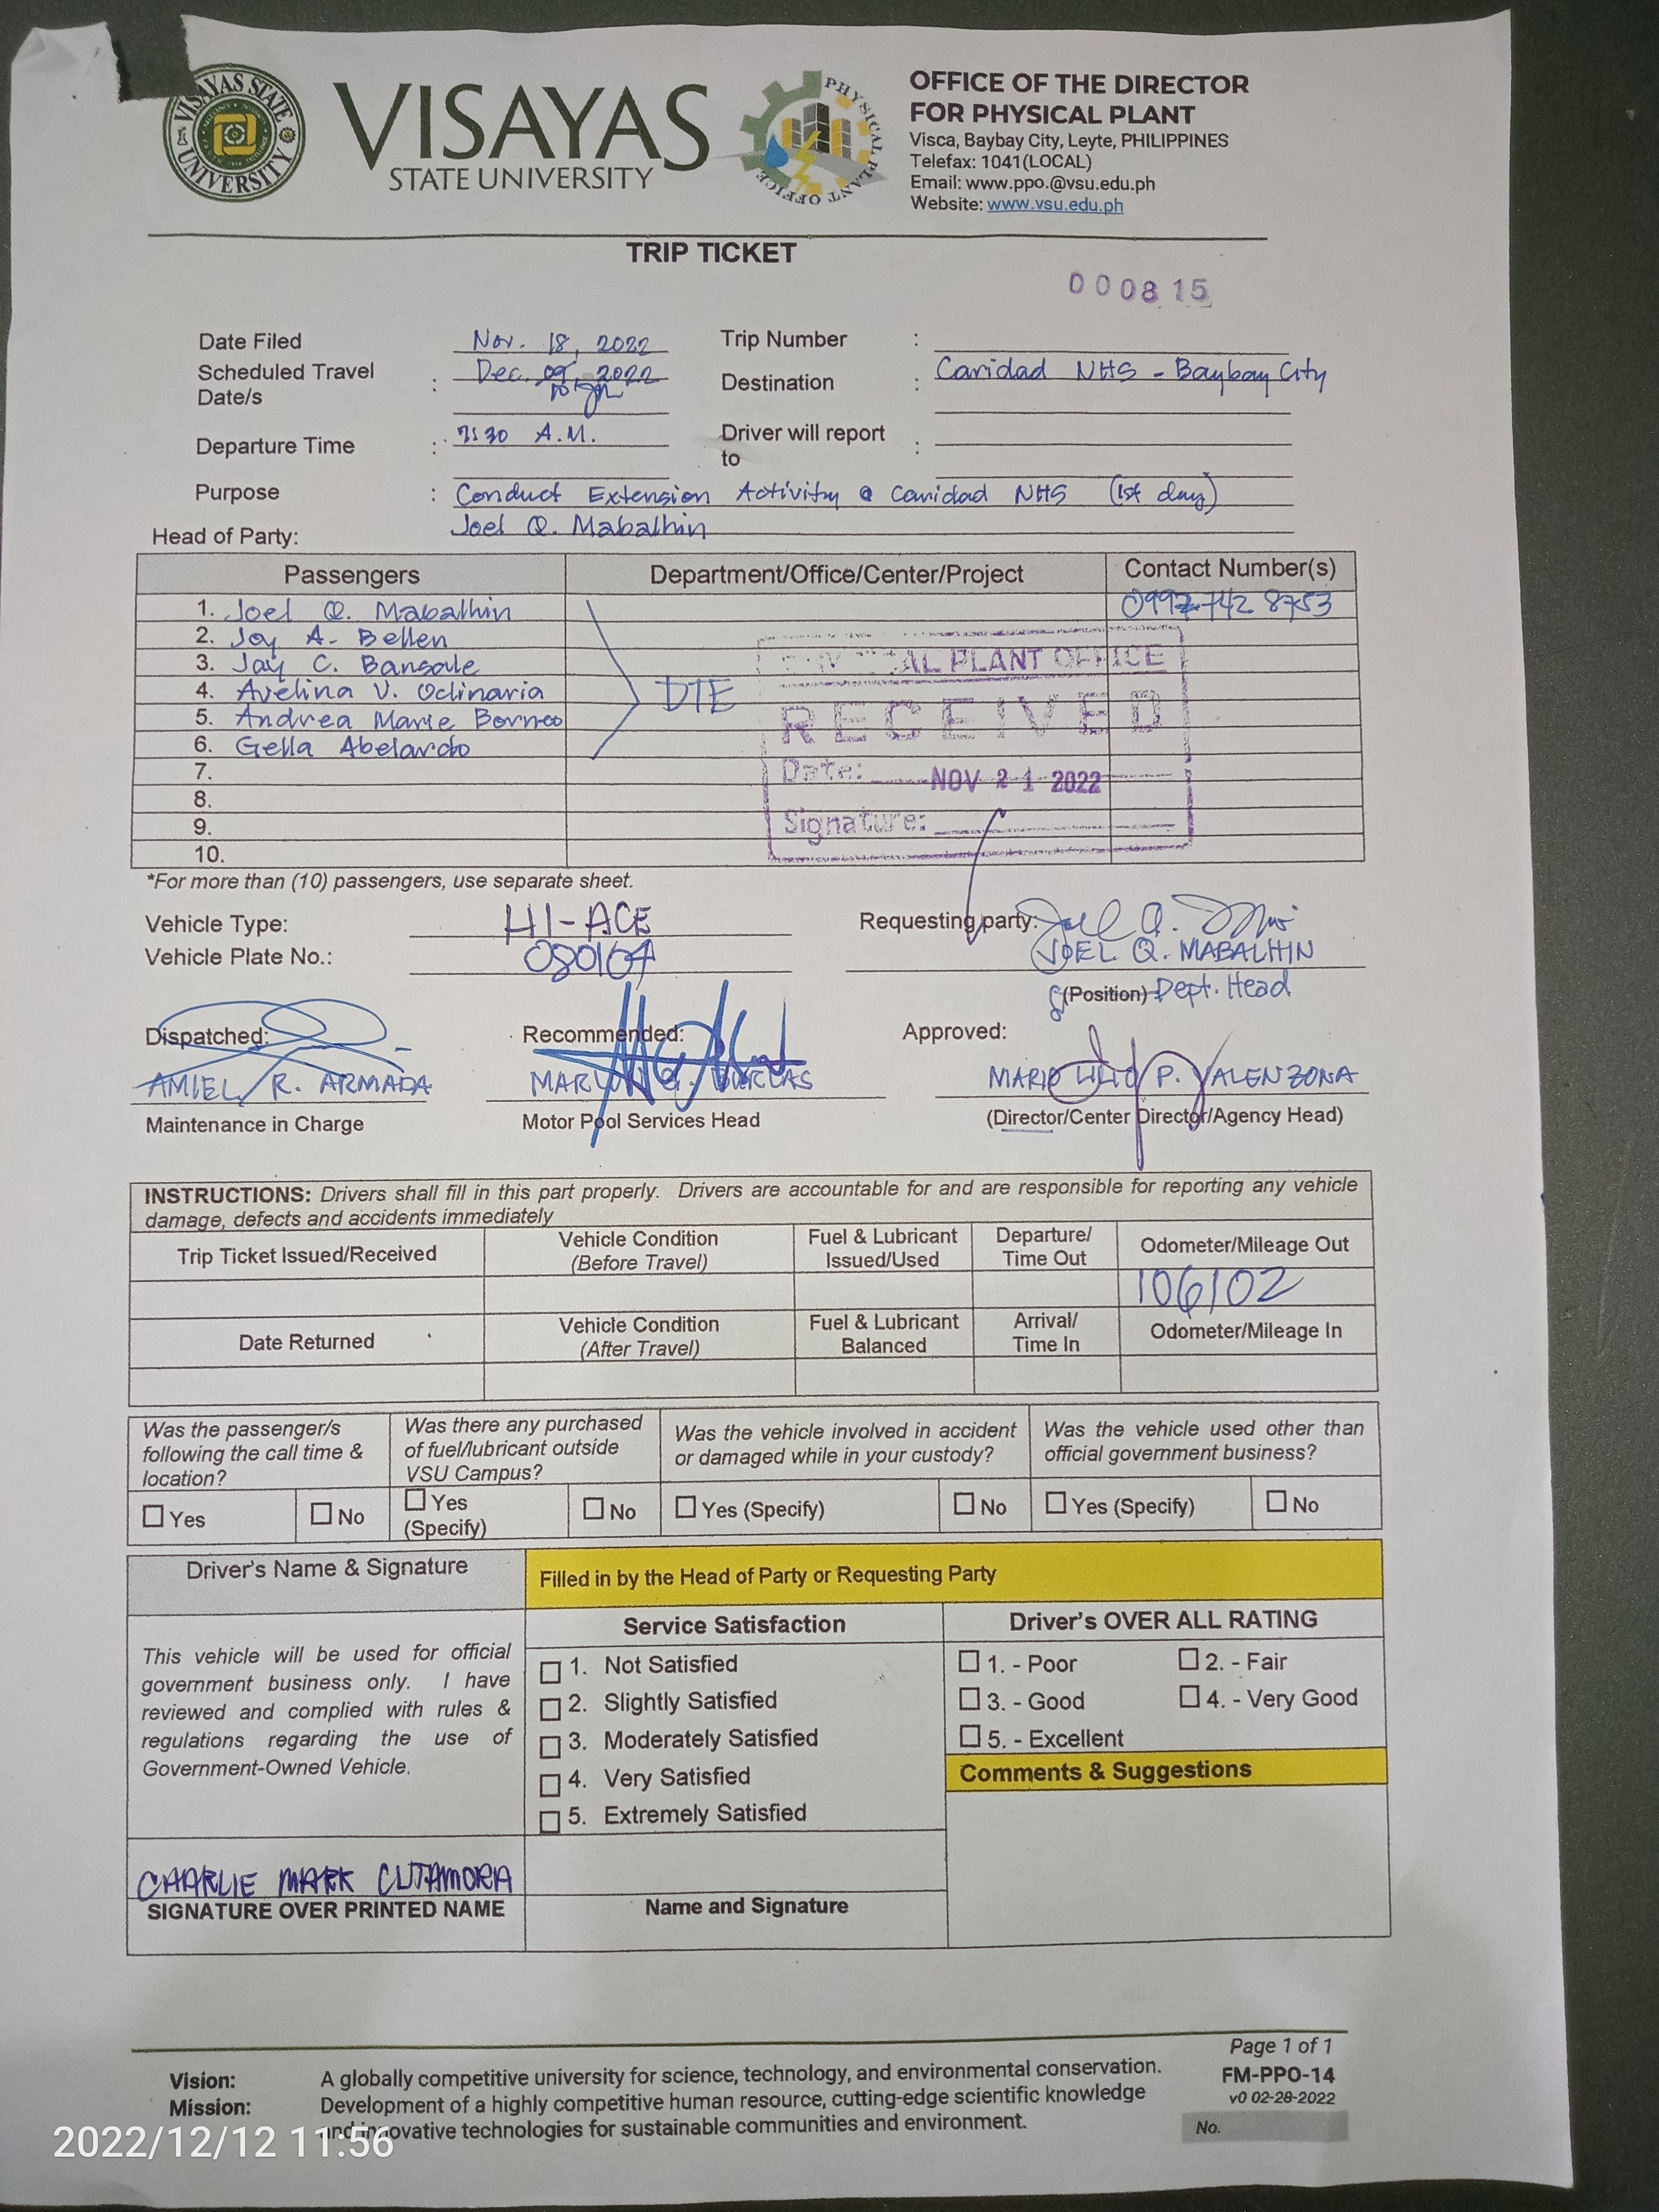 VISAYAS STATE UNIVERSITY
VISAYAS
STATE UNIVERSITY
PHYSICAL PLANT OFFICE
OFFICE OF THE DIRECTOR
FOR PHYSICAL PLANT
Visca, Baybay City, Leyte, PHILIPPINES
Telefax: 1041(LOCAL)
Email: www.ppo.@vsu.edu.ph
Website: www.vsu.edu.ph
TRIP TICKET
000815
Date Filed Nov. 18, 2022 Trip Number :
Scheduled Travel Date/s : Dec. 09, 2022 Destination : Caridad NHS - Baybay City
Departure Time : 7:30 A.M. Driver will report to :
Purpose : Conduct Extension Activity @ Caridad NHS (1st day)
Head of Party: Joel Q. Mabalhin
Passengers Department/Office/Center/Project Contact Number(s)
1. Joel Q. Mabalhin
2. Joy A. Bellen
3. Jay C. Bansale
4. Avelina V. Oclinaria
5. Andrea Marie Borneo
6. Gella Abelardo
7.
8.
9.
10.
DTE
PLANT OFFICE
RECEIVED
Date: NOV 21 2022
Signature:
*For more than (10) passengers, use separate sheet.
Vehicle Type: HI-ACE Requesting party:
JOEL Q. MABALHIN
Vehicle Plate No.: 080104
(Position) Dept. Head
Dispatched: Recommended: Approved:
AMIEL R. ARMADA MARLON G. BURLAS MARIO LILIO P. VALENZONA
Maintenance in Charge Motor Pool Services Head (Director/Center Director/Agency Head)
INSTRUCTIONS: Drivers shall fill in this part properly. Drivers are accountable for and are responsible for reporting any vehicle
damage, defects and accidents immediately
Trip Ticket Issued/Received Vehicle Condition (Before Travel) Fuel & Lubricant Issued/Used Departure/ Time Out Odometer/Mileage Out
106102
Date Returned Vehicle Condition (After Travel) Fuel & Lubricant Balanced Arrival/ Time In Odometer/Mileage In
Was the passenger/s following the call time & location?
Was there any purchased of fuel/lubricant outside VSU Campus?
Was the vehicle involved in accident or damaged while in your custody?
Was the vehicle used other than official government business?
Yes No Yes (Specify) No Yes (Specify) No Yes (Specify) No
Driver's Name & Signature Filled in by the Head of Party or Requesting Party
Service Satisfaction Driver's OVER ALL RATING
This vehicle will be used for official
government business only. I have
reviewed and complied with rules &
regulations regarding the use of
Government-Owned Vehicle.
1. Not Satisfied
2. Slightly Satisfied
3. Moderately Satisfied
4. Very Satisfied
5. Extremely Satisfied
1. - Poor 2. - Fair
3. - Good 4. - Very Good
5. - Excellent
Comments & Suggestions
CHARLIE MARK CUTAMORA
SIGNATURE OVER PRINTED NAME Name and Signature
Page 1 of 1
Vision: A globally competitive university for science, technology, and environmental conservation.
FM-PPO-14
Mission: Development of a highly competitive human resource, cutting-edge scientific knowledge
v0 02-28-2022
and innovative technologies for sustainable communities and environment.
No.
2022/12/12 11:56